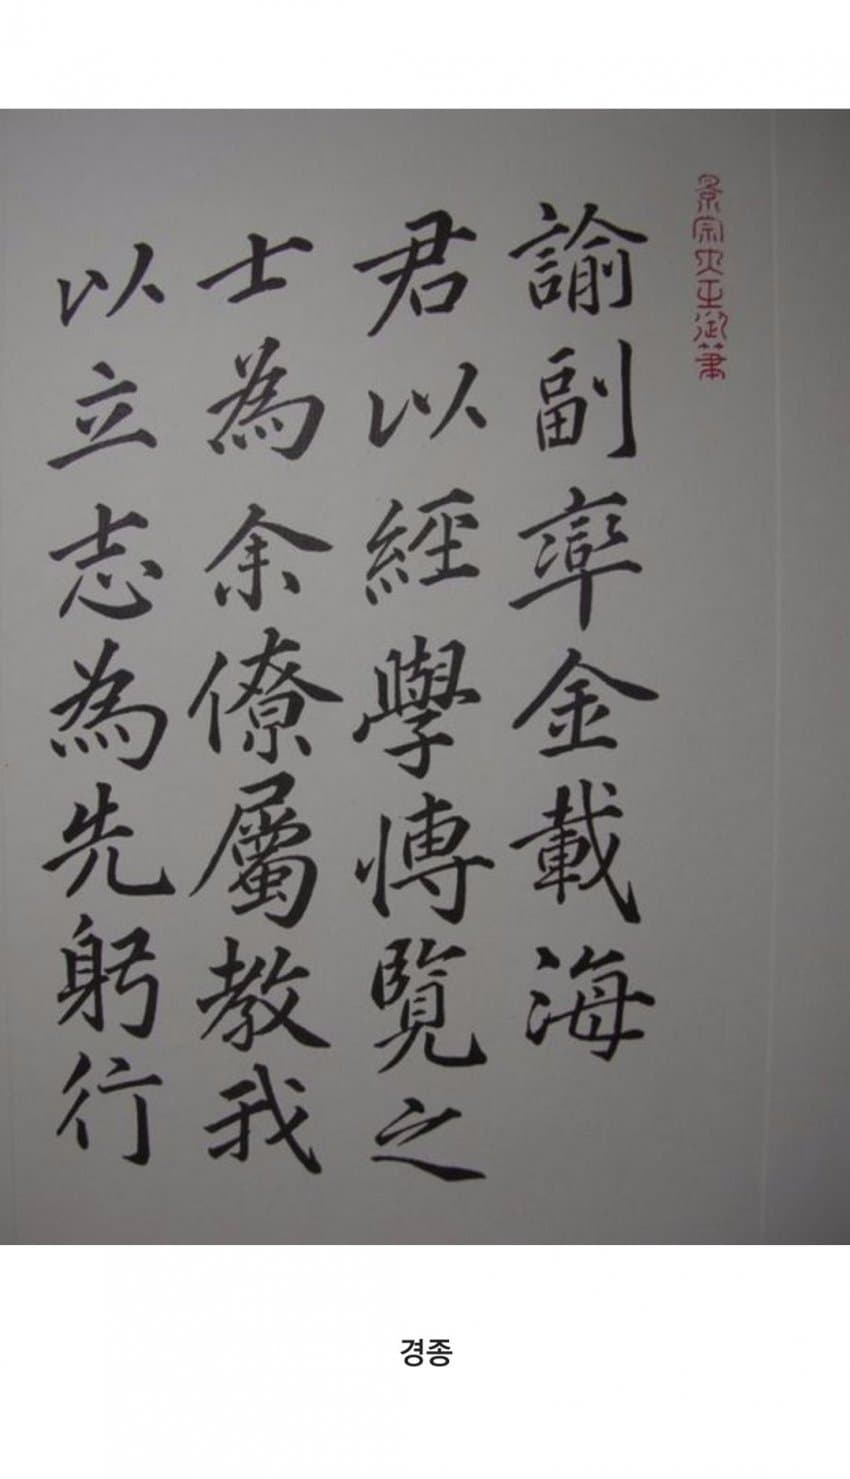 景宗大王御筆
諭副率金載海
君以經學愽覽之
士為余僚屬教我
以立志為先躬行
경종